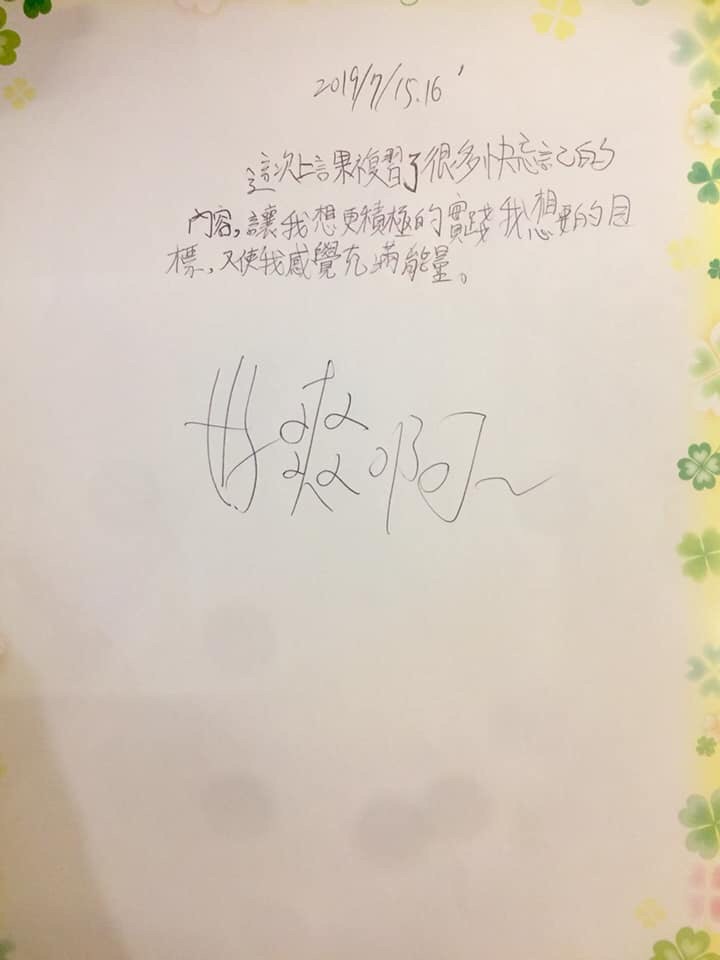 2019/7/15.16'
這次上課複習了很多快忘記的
內容,讓我想更積極的實踐我想要的目
標,又使我感覺充滿能量。
好爽啊~